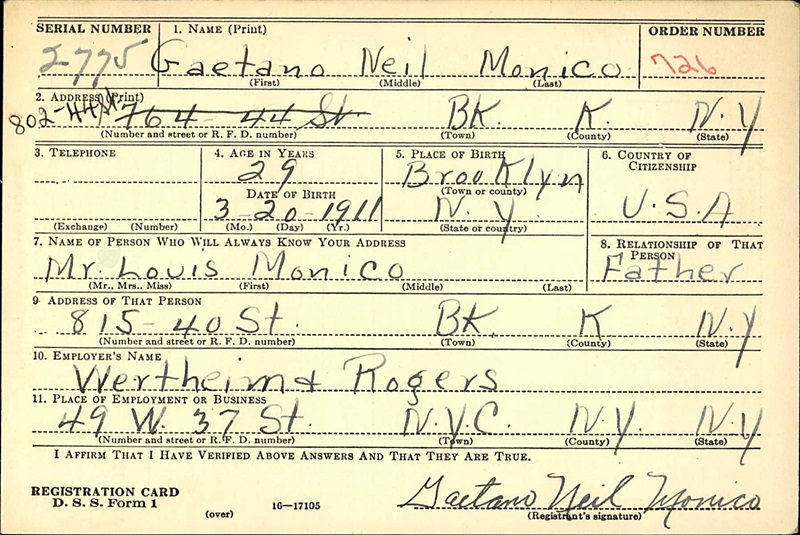 SERIAL NUMBER 1. NAME (Print) ORDER NUMBER
2775 Gaetano Neil Monico 726
(First) (Middle) (Last)
2. ADDRESS (Print)
802-44 St 764-44 St BK. K. N.Y
(Number and street or R. F. D. number) (Town) (County) (State)
3. TELEPHONE 4. AGE IN YEARS 5. PLACE OF BIRTH 6. COUNTRY OF CITIZENSHIP
29 Brooklyn
(Town or county)
DATE OF BIRTH U.S.A
3-20-1911 N.Y
(Exchange) (Number) (Mo.) (Day) (Yr.) (State or country)
7. NAME OF PERSON WHO WILL ALWAYS KNOW YOUR ADDRESS 8. RELATIONSHIP OF THAT PERSON
Mr. Louis Monico Father
(Mr., Mrs., Miss) (First) (Middle) (Last)
9. ADDRESS OF THAT PERSON
815-40 St. BK. K N.Y
(Number and street or R. F. D. number) (Town) (County) (State)
10. EMPLOYER'S NAME
Wertheim & Rogers
11. PLACE OF EMPLOYMENT OR BUSINESS
49 W. 37 St. N.Y.C. N.Y. N.Y
(Number and street or R. F. D. number) (Town) (County) (State)
I AFFIRM THAT I HAVE VERIFIED ABOVE ANSWERS AND THAT THEY ARE TRUE.
REGISTRATION CARD
D. S. S. Form 1 (over) 16—17105 Gaetano Neil Monico
(Registrant's signature)